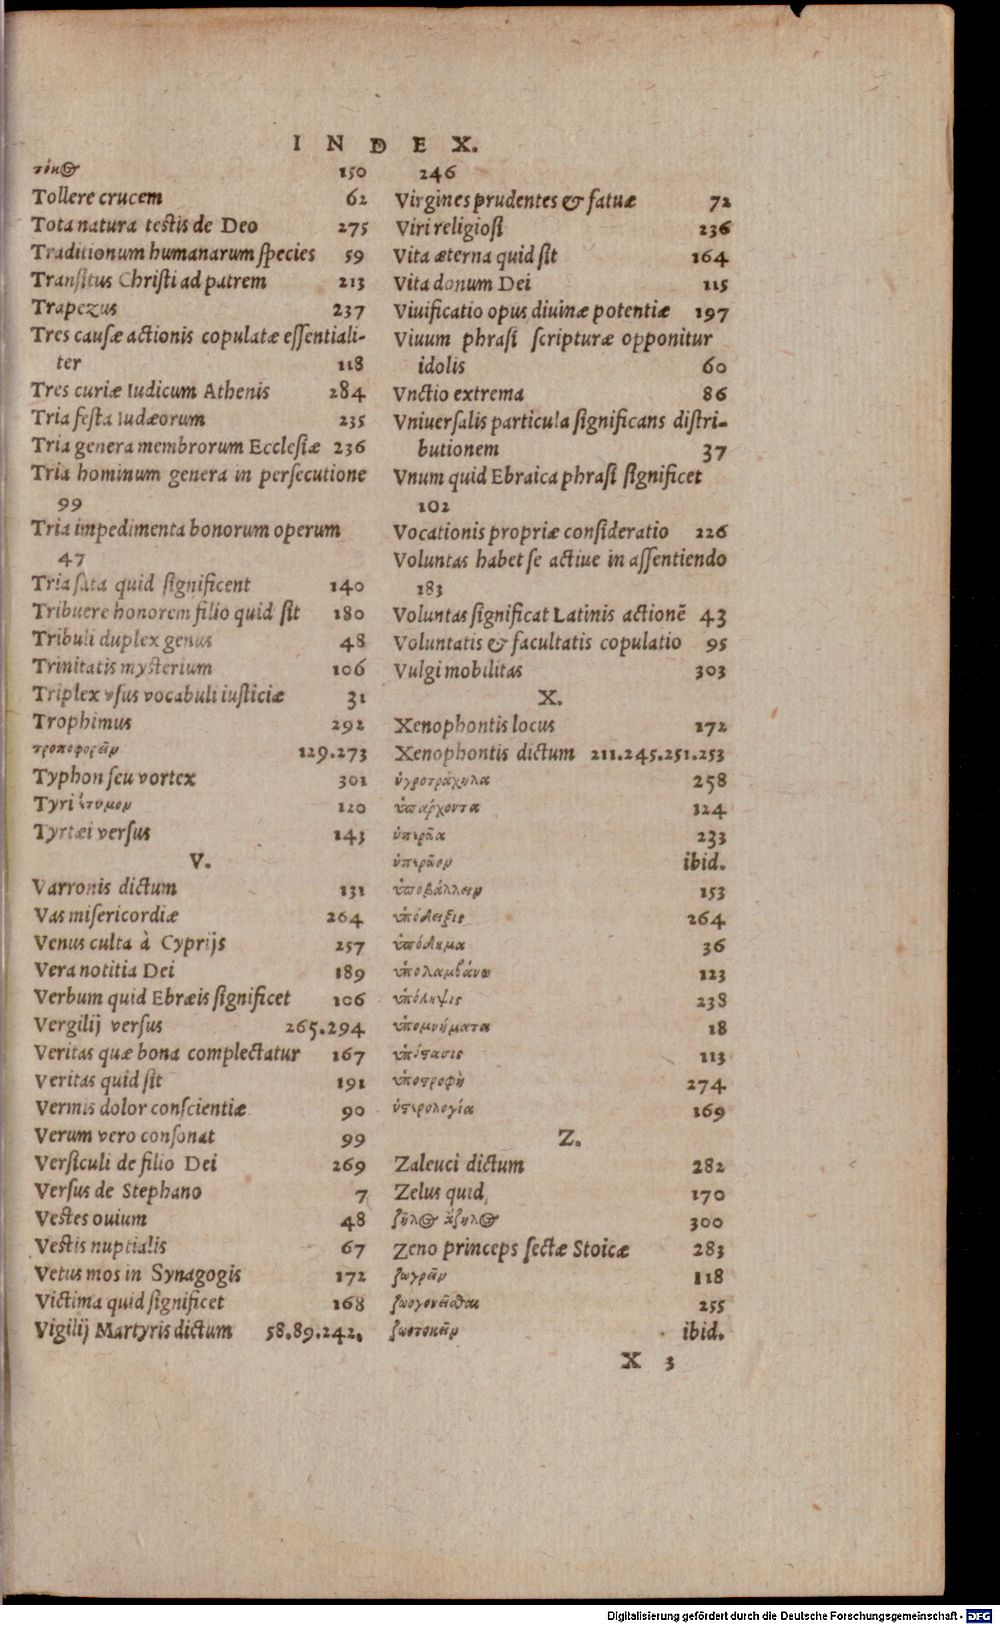 INDEX.
τόκος 150
Tollere crucem 62
Tota natura testis de Deo 275
Traditionum humanarum species 59
Transitus Christi ad patrem 213
Trapezus 237
Tres causæ actionis copulatæ essentiali-
ter 118
Tres curiæ Iudicum Athenis 284
Tria festa Iudæorum 235
Tria genera membrorum Ecclesiæ 236
Tria hominum genera in persecutione
99
Tria impedimenta bonorum operum
47
Tria sata quid significent 140
Tribuere honorem filio quid sit 180
Tribuli duplex genus 48
Trinitatis mysterium 106
Triplex vsus vocabuli iusticiæ 31
Trophimus 292
τροποφορεῖν 129.273
Typhon seu vortex 301
Tyri ἔτυμον 120
Tyrtæi versus 143
V.
Varronis dictum 131
Vas misericordiæ 264
Venus culta à Cyprijs 257
Vera notitia Dei 189
Verbum quid Ebræis significet 106
Vergilij versus 265.294
Veritas quæ bona complectatur 167
Veritas quid sit 191
Vermis dolor conscientiæ 90
Verum vero consonat 99
Versiculi de filio Dei 269
Versus de Stephano 7
Vestes ouium 48
Vestis nuptialis 67
Vetus mos in Synagogis 172
Victima quid significet 168
Vigilij Martyris dictum 58.89.242.
246
Virgines prudentes & fatuæ 72
Viri religiosi 236
Vita æterna quid sit 164
Vita donum Dei 115
Viuificatio opus diuinæ potentiæ 197
Viuum phrasi scripturæ opponitur
idolis 60
Vnctio extrema 86
Vniuersalis particula significans distri-
butionem 37
Vnum quid Ebraica phrasi significet
102
Vocationis propriæ consideratio 226
Voluntas habet se actiue in assentiendo
183
Voluntas significat Latinis actionē 43
Voluntatis & facultatis copulatio 95
Vulgi mobilitas 303
X.
Xenophontis locus 172
Xenophontis dictum 211.245.251.253
ὑγροτράχηλα 258
ὑπάρχοντα 124
ὑπερῶα 233
ὑπερῶον ibid.
ὑποβάλλειν 153
ὑπόδειξις 264
ὑπόδημα 36
ὑπολαμβάνω 123
ὑπόληψις 238
ὑπομνήματα 18
ὑπόστασις 113
ὑποστροφὴ 274
ὑστερολογία 169
Z.
Zaleuci dictum 282
Zelus quid 170
ζῆλος ἄζηλος 300
Zeno princeps sectæ Stoicæ 283
ζωγρεῖν 118
ζωογονεῖσθαι 255
ζωοτοκεῖν ibid.
X 3
Digitalisierung gefördert durch die Deutsche Forschungsgemeinschaft - DFG